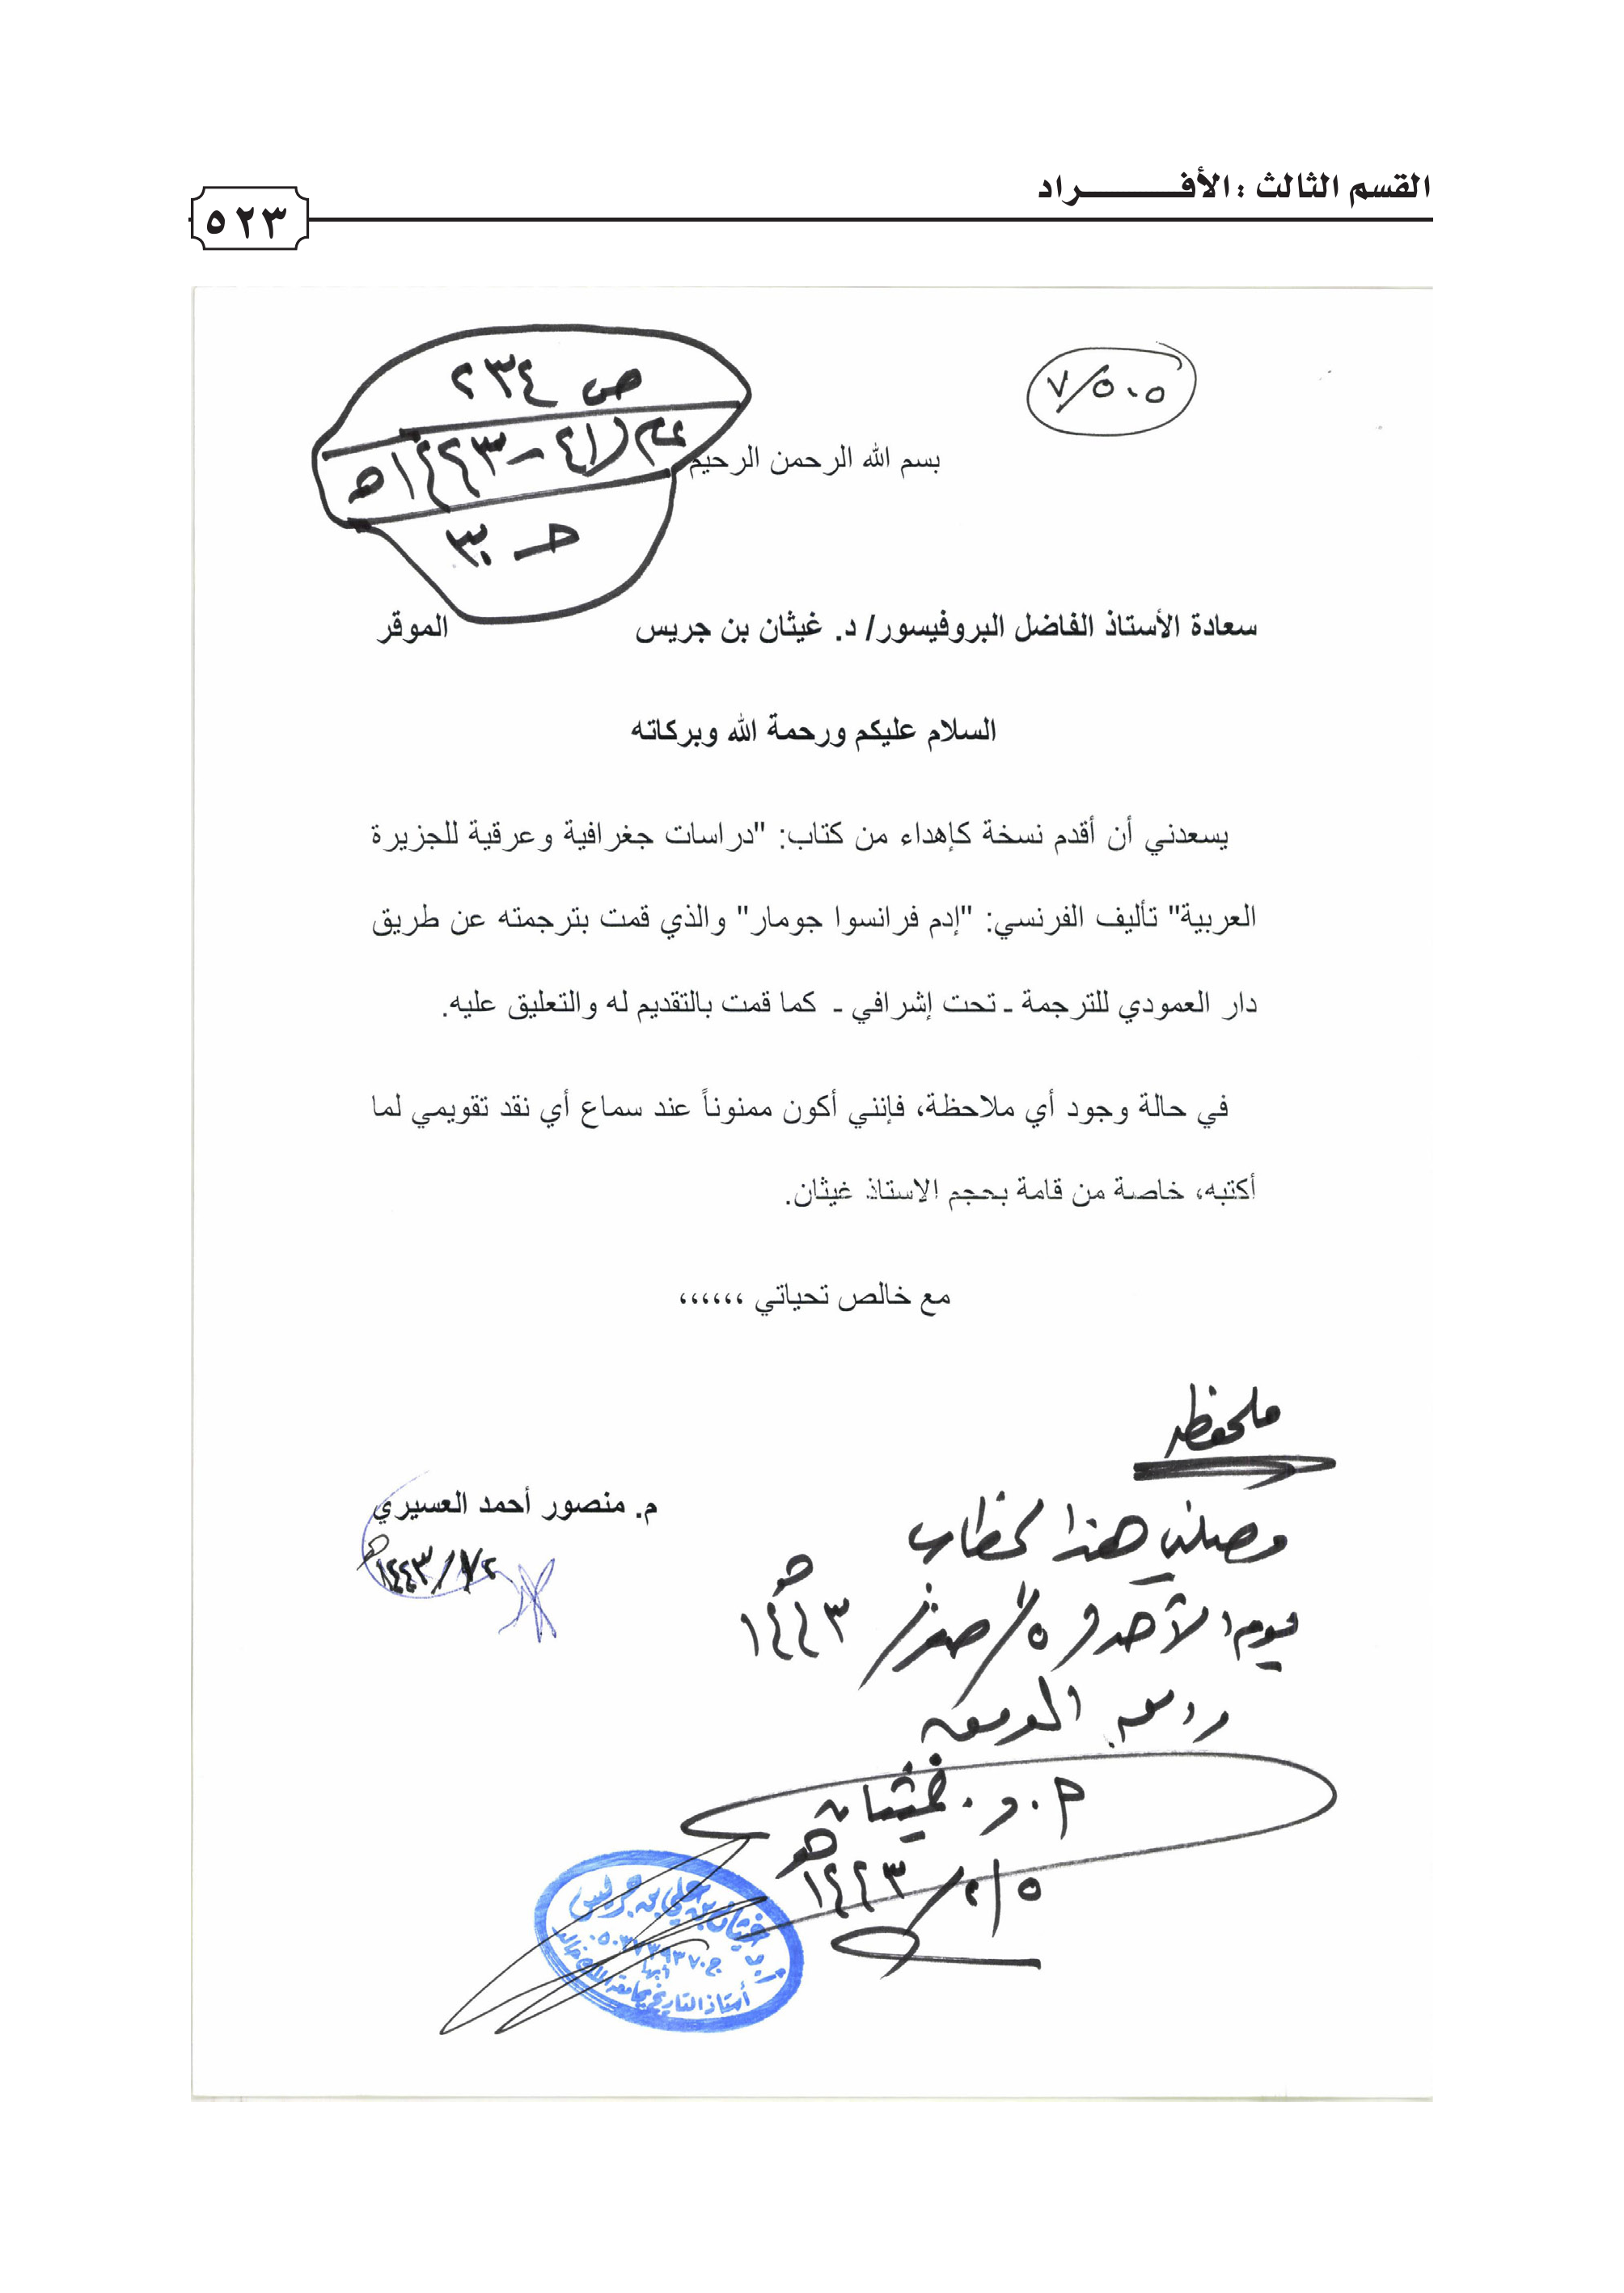 القسم الثالث : الأفـــــــــراد
٥٢٣
٧/٥٠٥
ص ٢٣٤
١٤٤٣هـ
حـ ٣٠
بسم الله الرحمن الرحيم
سعادة الأستاذ الفاضل البروفيسور/ د. غيثان بن جريس الموقر
السلام عليكم ورحمة الله وبركاته
يسعدني أن أقدم نسخة كإهداء من كتاب: "دراسات جغرافية وعرقية للجزيرة
العربية" تأليف الفرنسي: "إدم فرانسوا جومار" والذي قمت بترجمته عن طريق
دار العمودي للترجمة ـ تحت إشرافي ـ كما قمت بالتقديم له والتعليق عليه.
في حالة وجود أي ملاحظة، فإنني أكون ممنوناً عند سماع أي نقد تقويمي لما
أكتبه، خاصة من قامة بحجم الاستاذ غيثان.
مع خالص تحياتي ،،،،،،
م. منصور أحمد العسيري
١٤٤٣هـ
ملحوظة
وصلني هذا الخطاب
يوم الأحد ٥/ صفر/ ١٤٤٣هـ
غيثان
٥/٢/١٤٤٣هـ
غيثان بن علي بن جريس
أبها
أستاذ التاريخ بجامعة الملك خالد